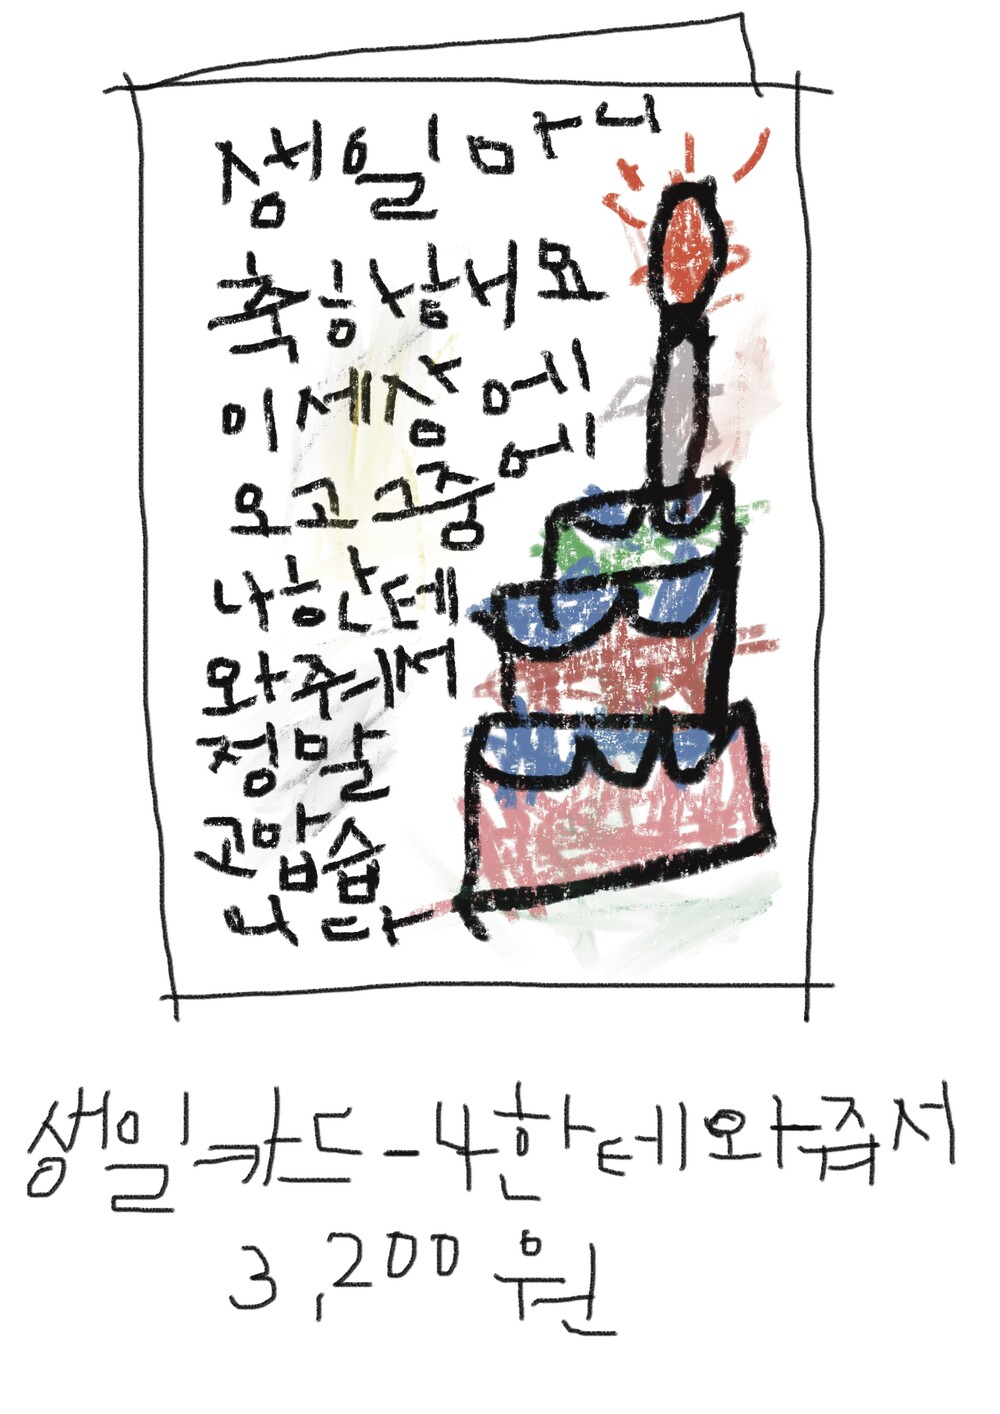 생일 마니
축하해요
이 세상에
오고 그중에
나한테
와줘서
정말
고맙습
니다
생일카드-나한테와줘서
3,200원